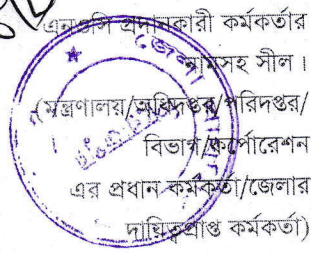 এনওসি প্রদানকারী কর্মকর্তার
নামসহ সীল।
(মন্ত্রণালয়/অধিদপ্তর/পরিদপ্তর/
বিভাগ/কর্পোরেশন
এর প্রধান কর্মকর্তা/জেলার
দায়িত্বপ্রাপ্ত কর্মকর্তা)
জেলা